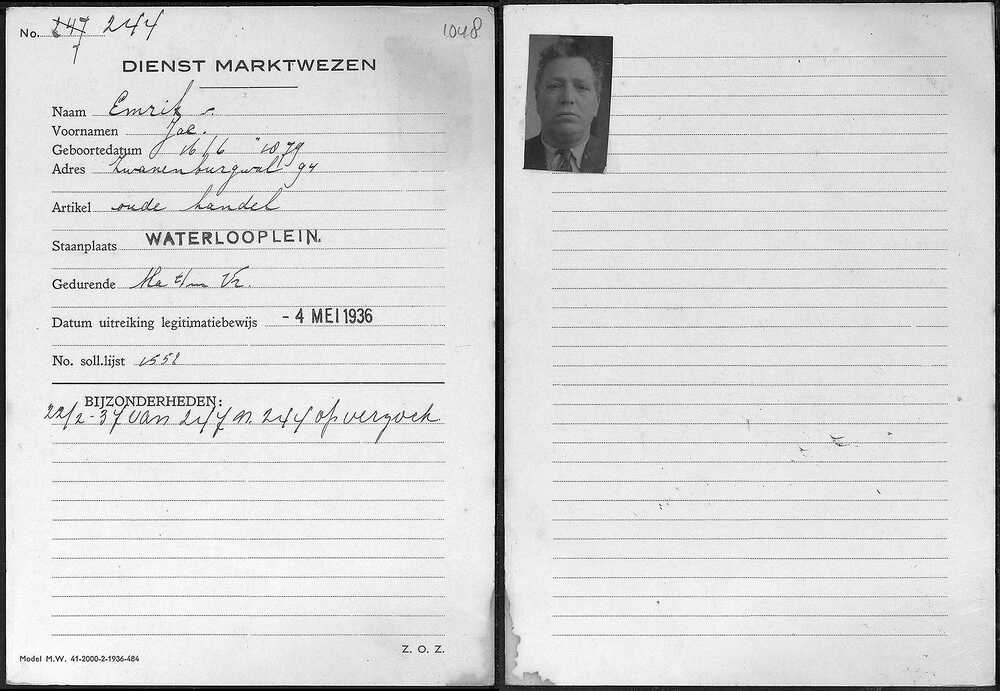 No. 247 244
1048
DIENST MARKTWEZEN
Naam Emrik
Voornamen Jac.
Geboortedatum 16/6 1879
Adres Zwanenburgwal 94
Artikel oude handel
Staanplaats WATERLOOPLEIN.
Gedurende Ma t/m Vr.
Datum uitreiking legitimatiebewijs - 4 MEI 1936
No. soll.lijst 1552
BIJZONDERHEDEN:
22/2-37 van 247 n. 244 op verzoek
Model M.W. 41-2000-2-1936-484
Z. O. Z.